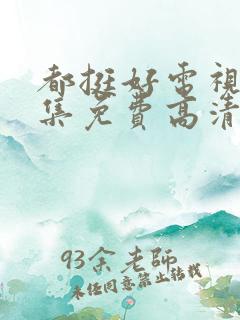 都挺好電視
集免費高清
93余老師
未經同意禁止轉載